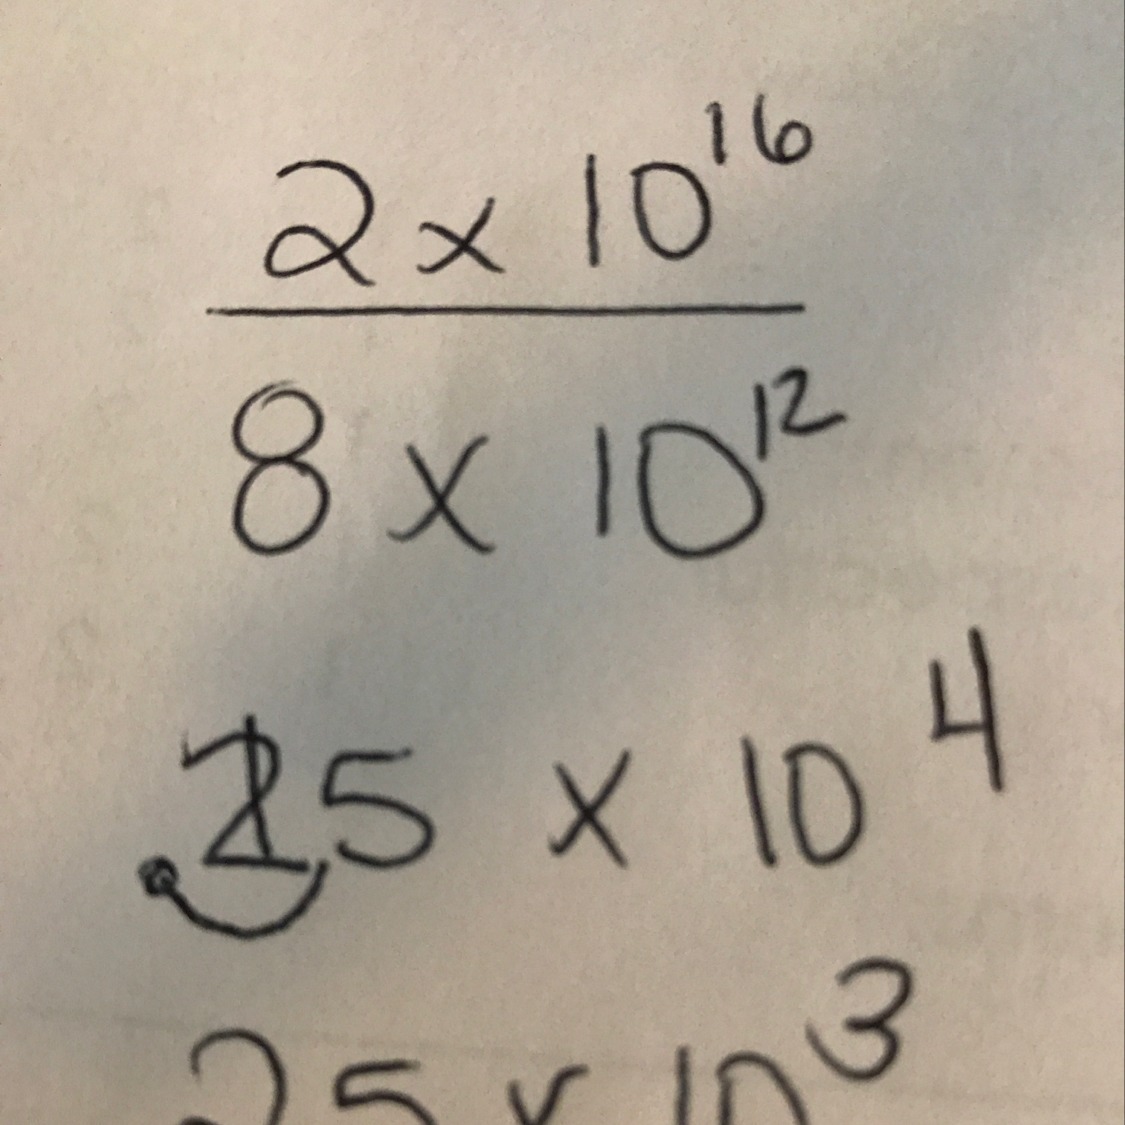 2 x 10^16
8 x 10^12
.25 x 10^4
2.5 x 10^3